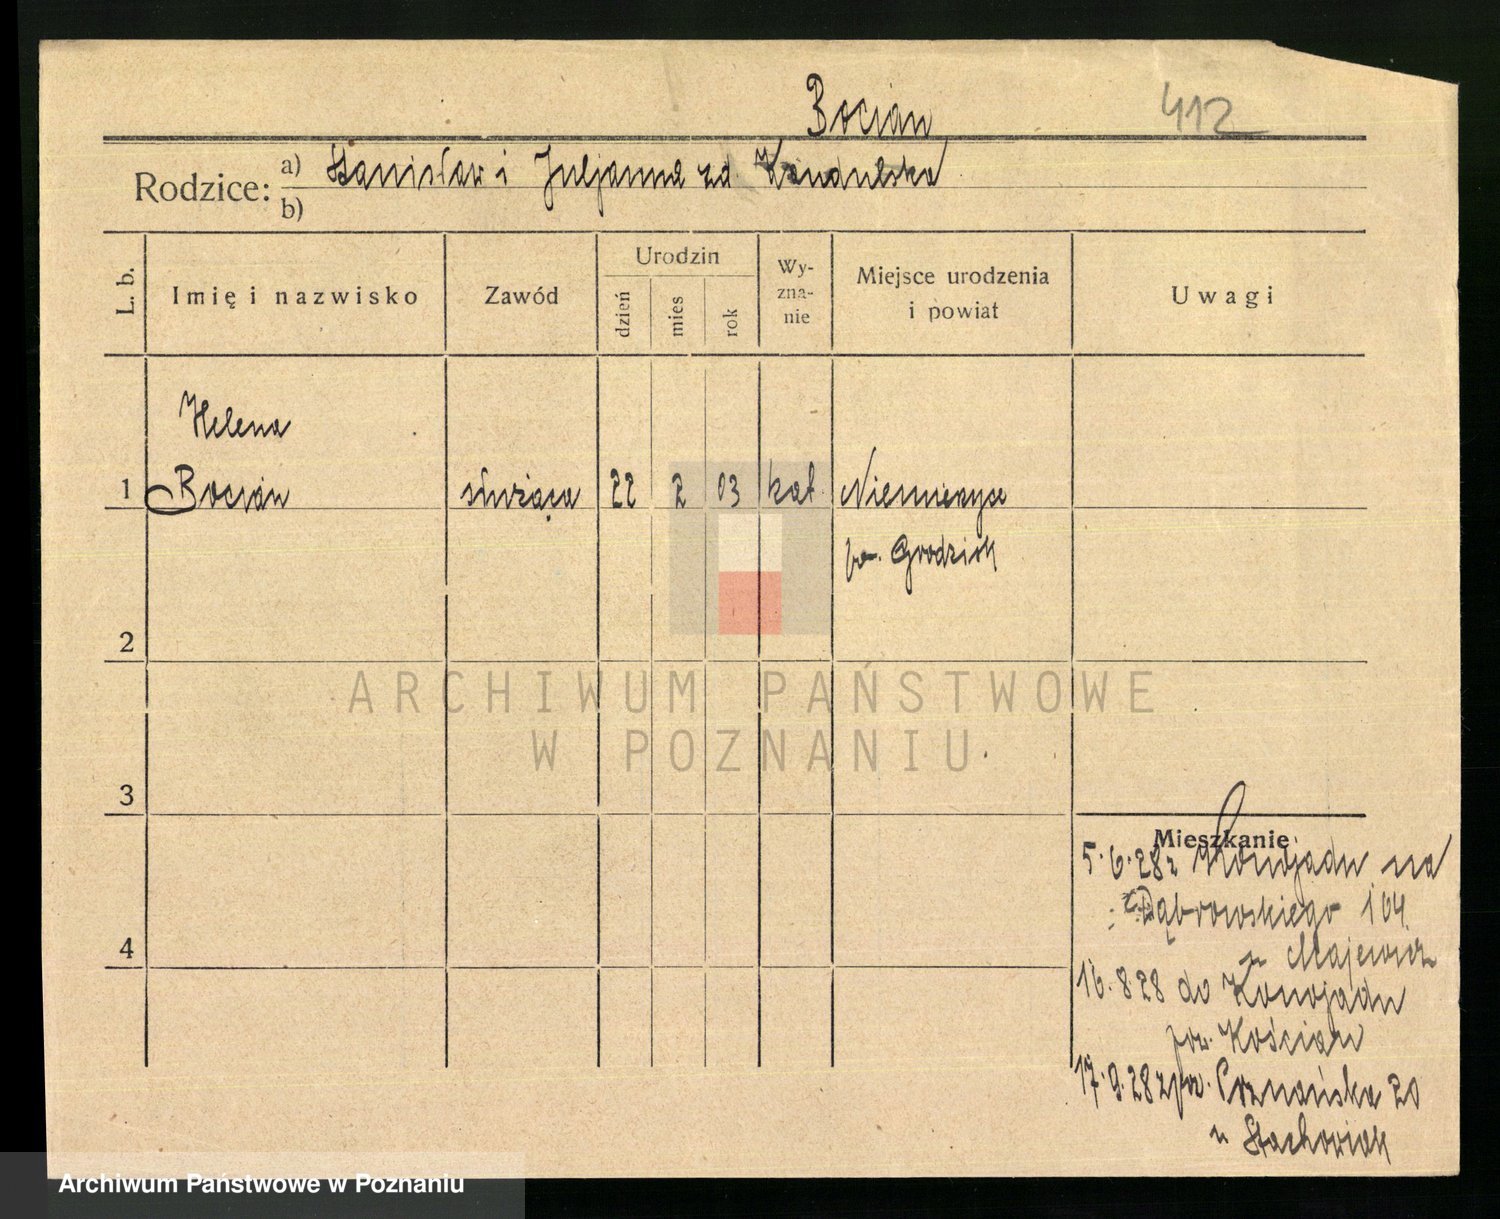 Bocian 412
Rodzice: a) Stanisław i Juljanna zd. Kandulska
b)
L. b. Imię i nazwisko Zawód Urodzin dzień mies rok Wy-zna-nie Miejsce urodzenia i powiat Uwagi
Helena
1 Bocian służąca 22 2 03 kat. Niemierzyce
po. Grodzisk
2
3
4
Mieszkanie
5.6.28 z Konojadu na
Dąbrowskiego 104
u Majewicz
16.8.28 do Konojadu
pow. Kościan
17.9.28 z pow. Poznańska 20
u Stachowiak
ARCHIWUM PAŃSTWOWE
W POZNANIU
Archiwum Państwowe w Poznaniu